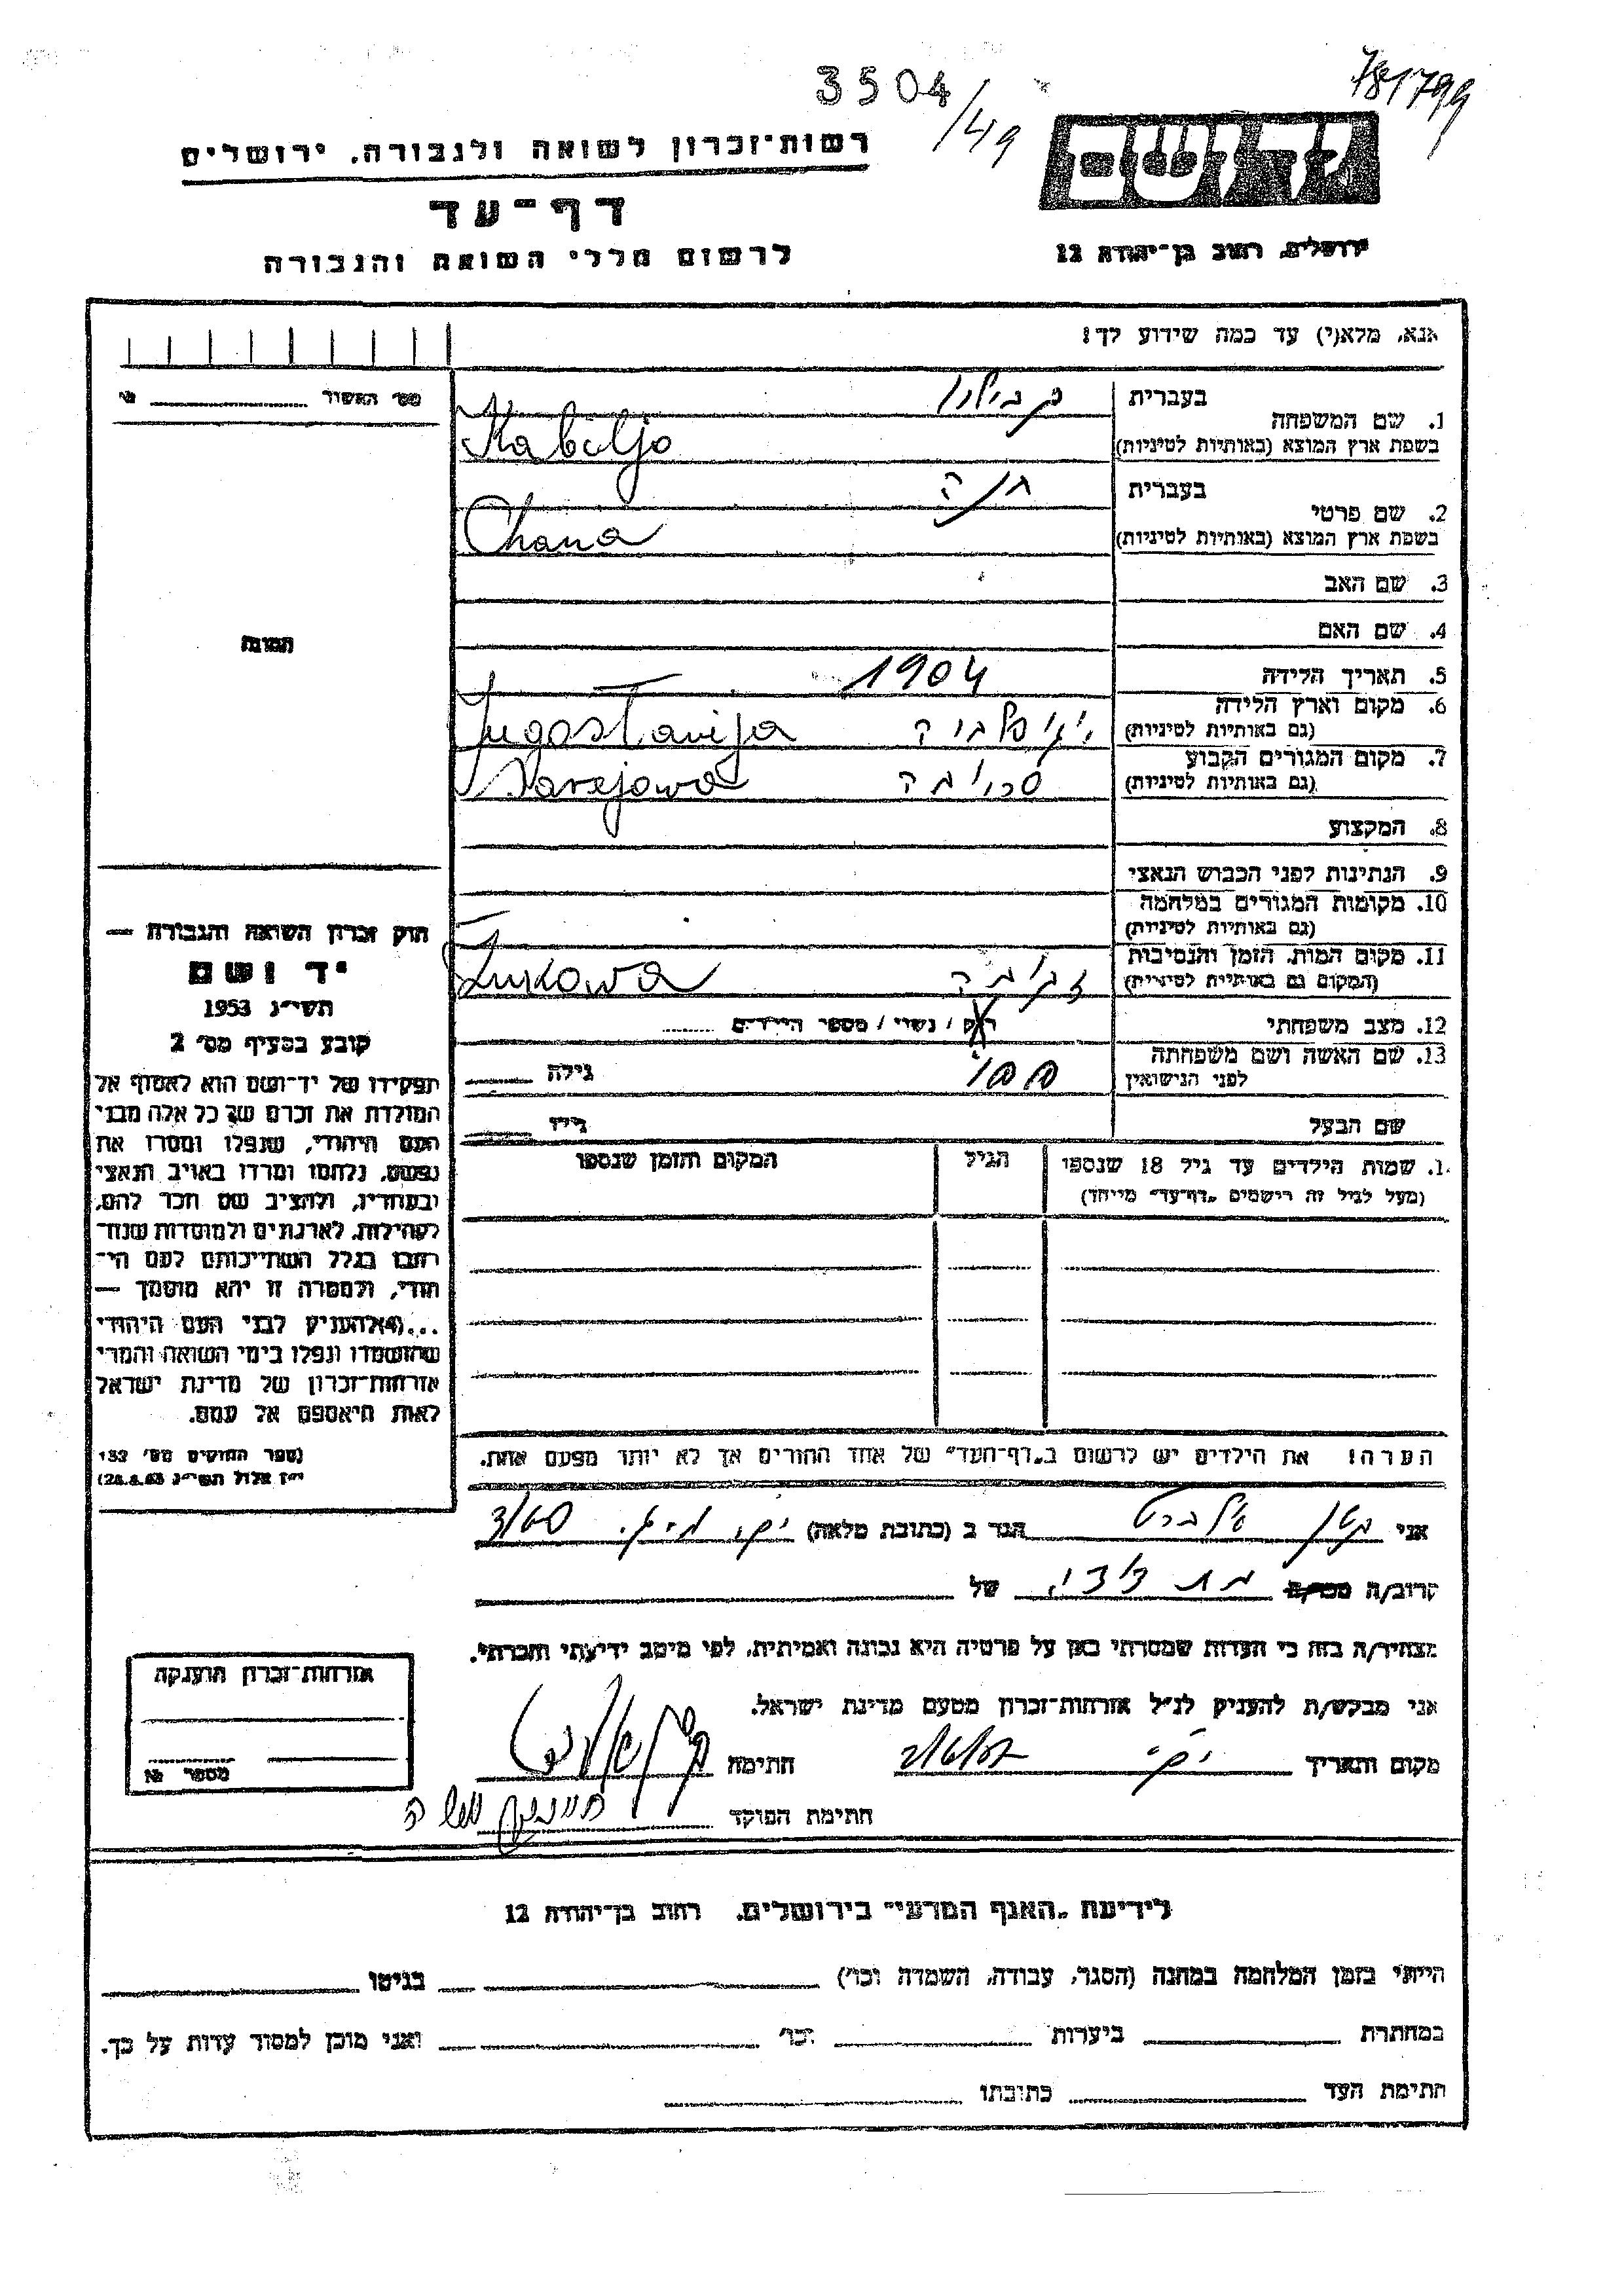 3504/49
781799
יד ושם
רשות־זכרון לשואה ולגבורה, ירושלים
דף־עד
לרשום חללי השואה והגבורה
ירושלים, רחוב בן־יהודה 12
אנא, מלא(י) עד כמה שידוע לך!
מס׳ האשור №
בעברית
1. שם המשפחה
בשפת ארץ המוצא (באותיות לטיניות)
Kabiljo
בעברית חנה
2. שם פרטי
בשפת ארץ המוצא (באותיות לטיניות)
Chana
3. שם האב
4. שם האם
תמונה
5. תאריך הלידה 1904
6. מקום וארץ הלידה
(גם באותיות לטיניות)
יוגוסלביה Jugoslavija
7. מקום המגורים הקבוע
(גם באותיות לטיניות)
Sarejowo
8. המקצוע
9. הנתינות לפני הכבוש הנאצי
10. מקומות המגורים במלחמה
(גם באותיות לטיניות)
11. מקום המות, הזמן והנסיבות
(המקום גם באותיות לטיניות)
12. מצב משפחתי רוק / נשוי / מספר הילדים
13. שם האשה ושם משפחתה
לפני הנישואין
גילה
שם הבעל גילו
1. שמות הילדים עד גיל 18 שנספו הגיל המקום והזמן שנספו
(מעל לגיל זה רישמים „דף־עד״ מייחד)
הערה! את הילדים יש לרשום ב„דף־העד״ של אחד ההורים אך לא יותר מפעם אחת.
חוק זכרון השואה והגבורה —
יד ושם
תשי״ג 1953
קובע בסעיף מס׳ 2
תפקידו של יד־ושם הוא לאסוף אל
המולדת את זכרם של כל אלה מבני
העם היהודי, שנפלו ומסרו את
נפשם, נלחמו ומרדו באויב הנאצי
ובעוזריו, ולהציב שם וזכר להם,
לקהילות, לארגונים ולמוסדות שנח־
רבו בגלל השתייכותם לעם הי־
הודי, ולמטרה זו יהא מוסמך —
...(4) להעניק לבני העם היהודי
שהושמדו ונפלו בימי השואה והמרי
אזרחות־זכרון של מדינת ישראל
לאות היאספם אל עמם.
(ספר החוקים מס׳ 132
י״ז אלול תשי״ג 28.8.53)
אני אלברט הגר ב (כתובת מלאה)
קרוב/ה מכר/ה של
מצהיר/ה בזה כי העדות שמסרתי כאן על פרטיה היא נכונה ואמיתית, לפי מיטב ידיעתי והכרתי.
אני מבקש/ת להעניק לנ״ל אזרחות־זכרון מטעם מדינת ישראל.
מקום ותאריך חתימה
חתימת הפוקד
אזרחות־זכרון הוענקה
מספר №
לידיעת „האגף המדעי״ בירושלים, רחוב בן־יהודה 12
הייתי בזמן המלחמה במחנה (הסגר, עבודה, השמדה וכו׳) בגיטו
במחתרת ביערות וכו׳ ואני מוכן למסור עדות על כך.
חתימת העד כתובתו